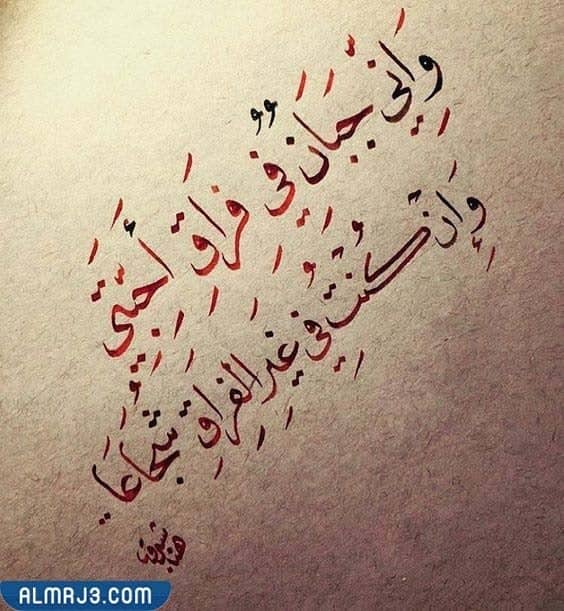 وَإِنِّي جَبَانٌ فِي فِرَاقِ أَحِبَّتِي
وَإِنْ كُنْتُ فِي غَيْرِ الْفِرَاقِ شُجَاعَا
ALMRJ3.COM